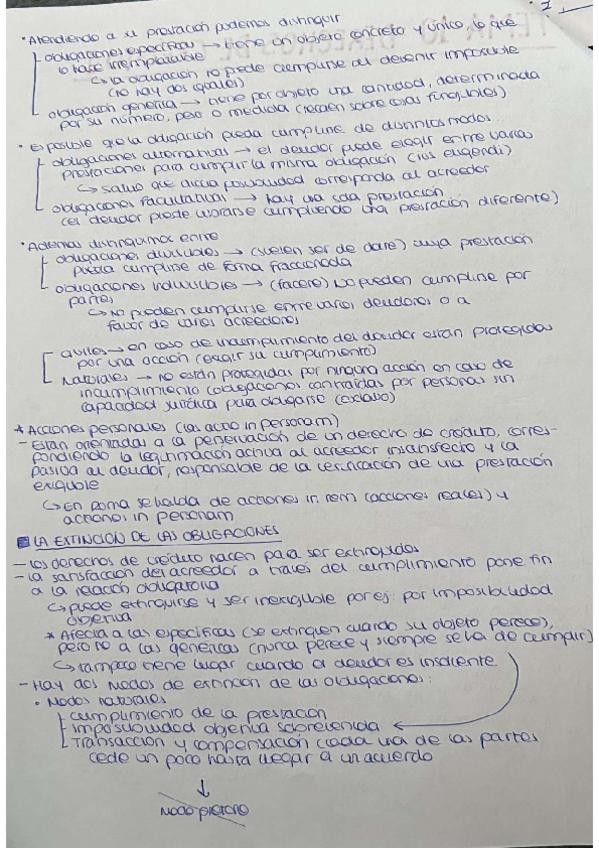 • Atendiendo a su prestación podemos distinguir
obligaciones específicas → tiene un objeto concreto y único, lo que
lo hace irremplazable
↳ la obligación no puede cumplirse al devenir imposible
(no hay dos iguales)
obligación genérica → tiene por objeto una cantidad, determinada
por su número, peso o medida (recaen sobre cosas fungibles)
• Es posible que la obligación pueda cumplirse de distintos modos
obligaciones alternativas → el deudor puede elegir entre varias
prestaciones para cumplir la misma obligación (ius eligendi)
↳ salvo que dicha posibilidad corresponda al acreedor
obligaciones facultativas → hay una sola prestación
(el deudor puede liberarse cumpliendo una prestación diferente)
• Además distinguimos entre
obligaciones divisibles → (suelen ser de dare) cuya prestación
pueda cumplirse de forma fraccionada
obligaciones indivisibles → (facere) no pueden cumplirse por
partes
↳ no pueden cumplirse entre varios deudores o a
favor de varios acreedores
civiles → en caso de incumplimiento del deudor están protegidas
por una acción (exigir su cumplimiento)
Naturales → no están protegidas por ninguna acción en caso de
incumplimiento (obligaciones contraídas por personas sin
capacidad jurídica para obligarse (esclavo)
* Acciones personales (las actio in personam)
- Están orientadas a la persecución de un derecho de crédito, corres-
pondiendo la legitimación activa al acreedor insatisfecho y la
pasiva al deudor, responsable de la verificación de una prestación
exigible
↳ En Roma se habla de actiones in rem (acciones reales) y
actiones in personam
LA EXTINCIÓN DE LAS OBLIGACIONES
- Los derechos de crédito nacen para ser extinguidos
- La satisfacción del acreedor a través del cumplimiento pone fin
a la relación obligatoria
↳ puede extinguirse y ser inexigible por ej: por imposibilidad
objetiva
* Afecta a las específicas (se extinguen cuando su objeto perece),
pero no a las genéricas (nunca perece y siempre se ha de cumplir)
↳ tampoco tiene lugar cuando el deudor es insolvente
- Hay dos modos de extinción de las obligaciones:
• Modos naturales
cumplimiento de la prestación
Imposibilidad objetiva sobrevenida
Transacción y compensación (cada una de las partes
cede un poco hasta llegar a un acuerdo
↓